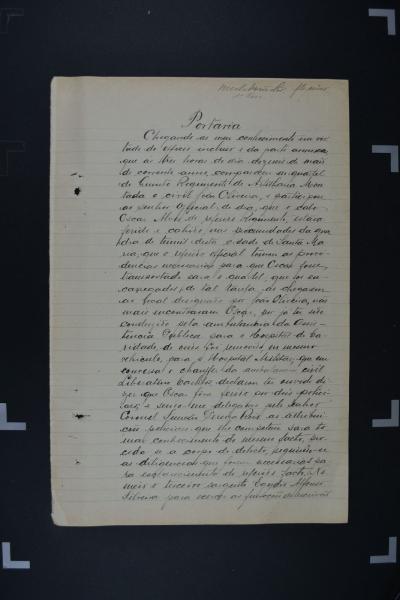 Portaria
Chegando ao meu conhecimento em vir-
tude do officio incluso e da parte annexa,
que as tres horas do dia dezeseis de maio
do corrente anno, compareceu ao quartel
do Quinto Regimento de Artilharia Mon-
tada o civil João Oliveira, e participou
ao senhor official de dia, que o cabo
Oscar do referido Regimento, estava
ferido e cahido, nas proximidades da qua-
dra de tennis desta cidade de Santa Ma-
ria, que o referido official tomou as provi-
dencias necessarias para que Oscar fosse
transportado para o quartel, que os en-
carregados de tal tarefa, ao chegarem
ao local designado por João Oliveira, não
mais encontraram Oscar, por já ter sido
conduzido pela ambulancia da Assis-
tencia Publica para o Hospital de Ca-
ridade, de onde foi removido no mesmo
vehiculo, para o Hospital Militar, que em
conversa o chauffeur da ambulancia civil
declarou ter ouvido di-
zer que Oscar fôra ferido por dois policia-
es, e sendo-me delegadas pelo senhor
Coronel as attribui-
ções policiaes que lhe competem para to-
mar conhecimento do mesmo facto, pro-
ceda-se a corpo de delicto, seguindo-se
as diligencias que forem necessarias pa-
ra esclarecimento do referido facto. No-
meio o terceiro sargento Affonso
Silveira para servir as funcções de escrivão